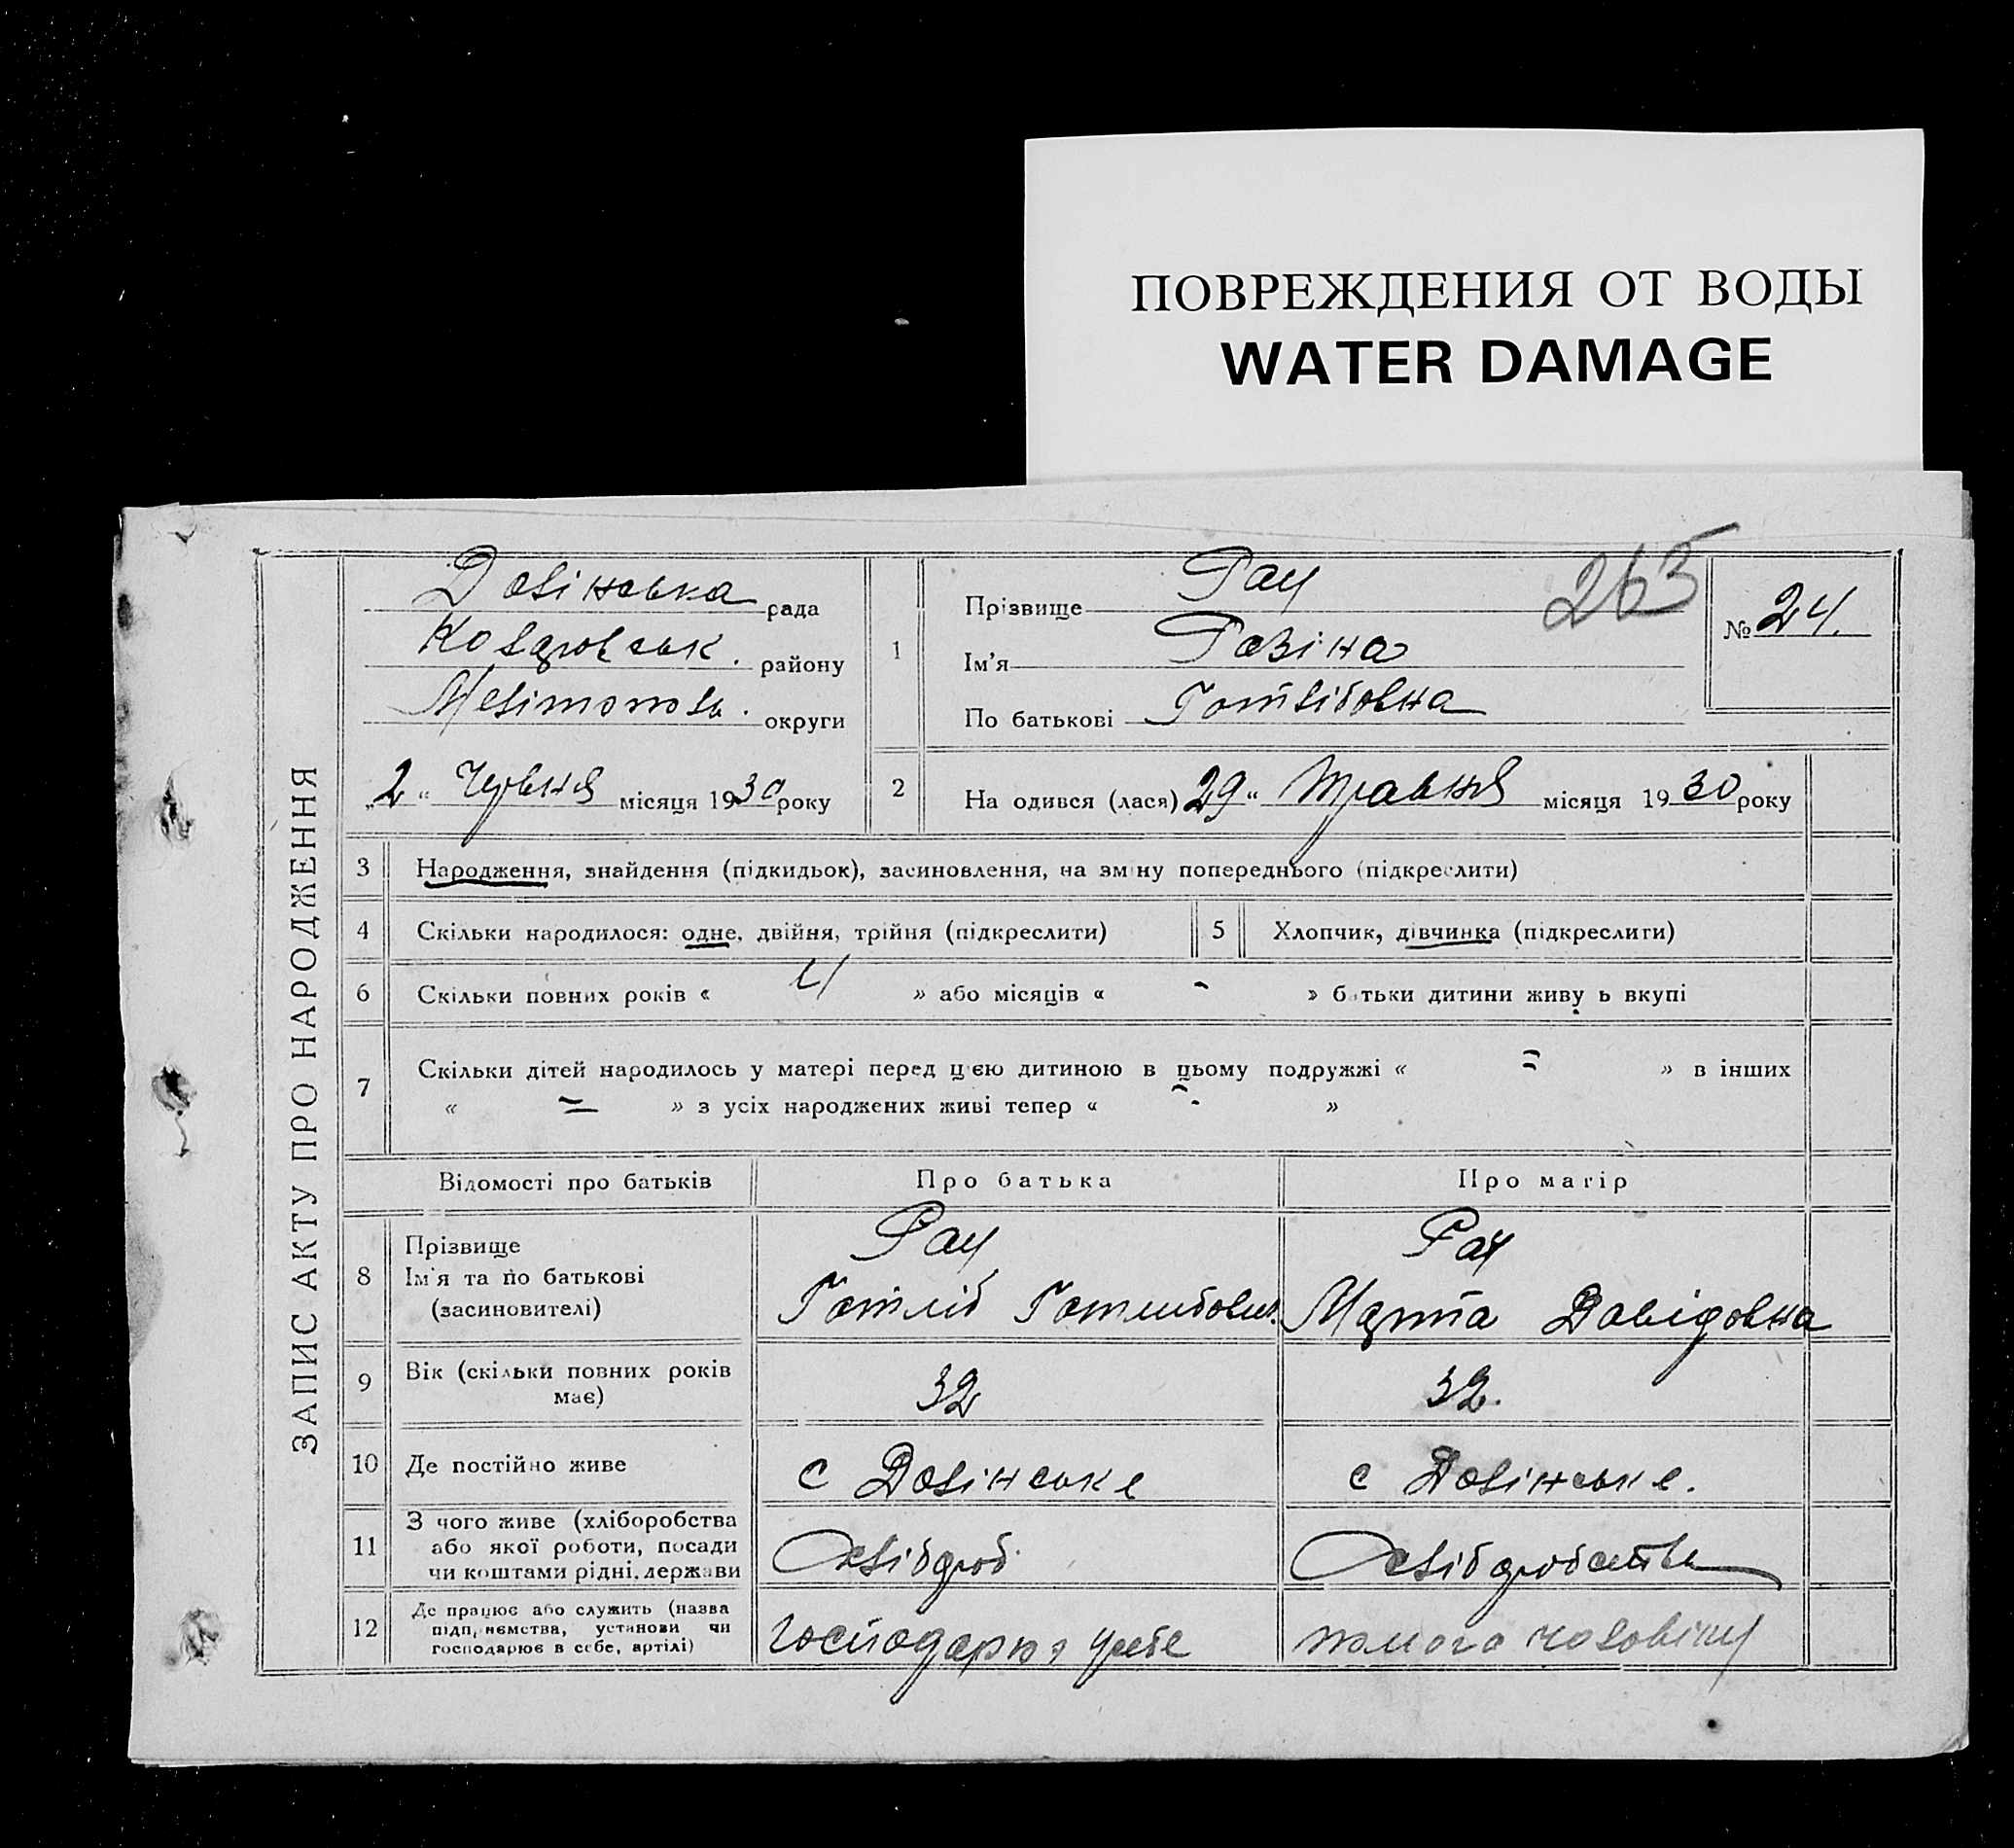 ПОВРЕЖДЕНИЯ ОТ ВОДЫ
WATER DAMAGE
263
ЗАПИС АКТУ ПРО НАРОДЖЕННЯ
Долінська рада
району
Мелітополь. округи
„2“ Червня місяця 1930 року
1
Прізвище Рау
Ім’я Розіна
По батькові Готлібовна
№ 24.
2 На одився (лася) 29 “ Травня місяця 1930 року
3 Народження, знайдення (підкидьок), засиновлення, на зміну попереднього (підкреслити)
4 Скільки народилося: одне, двійня, трійня (підкреслити)
5 Хлопчик, дівчинка (підкреслити)
6 Скільки повних років « 4 » або місяців « - » батьки дитини живу ь вкупі
7 Скільки дітей народилось у матері перед цією дитиною в цьому подружжі « = » в інших
« = » з усіх народжених живі тепер « - »
Відомості про батьків Про батька Про матір
8 Прізвище
Ім’я та по батькові
(засиновителі)
Рау
Готліб Готлибович.
Рау
Марта Давідовна
9 Вік (скільки повних років
має)
32
32.
10 Де постійно живе
с Долінське
с Долінське.
11 З чого живе (хліборобства
або якої роботи, посади
чи коштами рідні, держави
хлібороб.
хліборобств
12 Де працює або служить (назва
підприємства, установи чи
господарює в себе, артілі)
господарює у себе
чоловіку